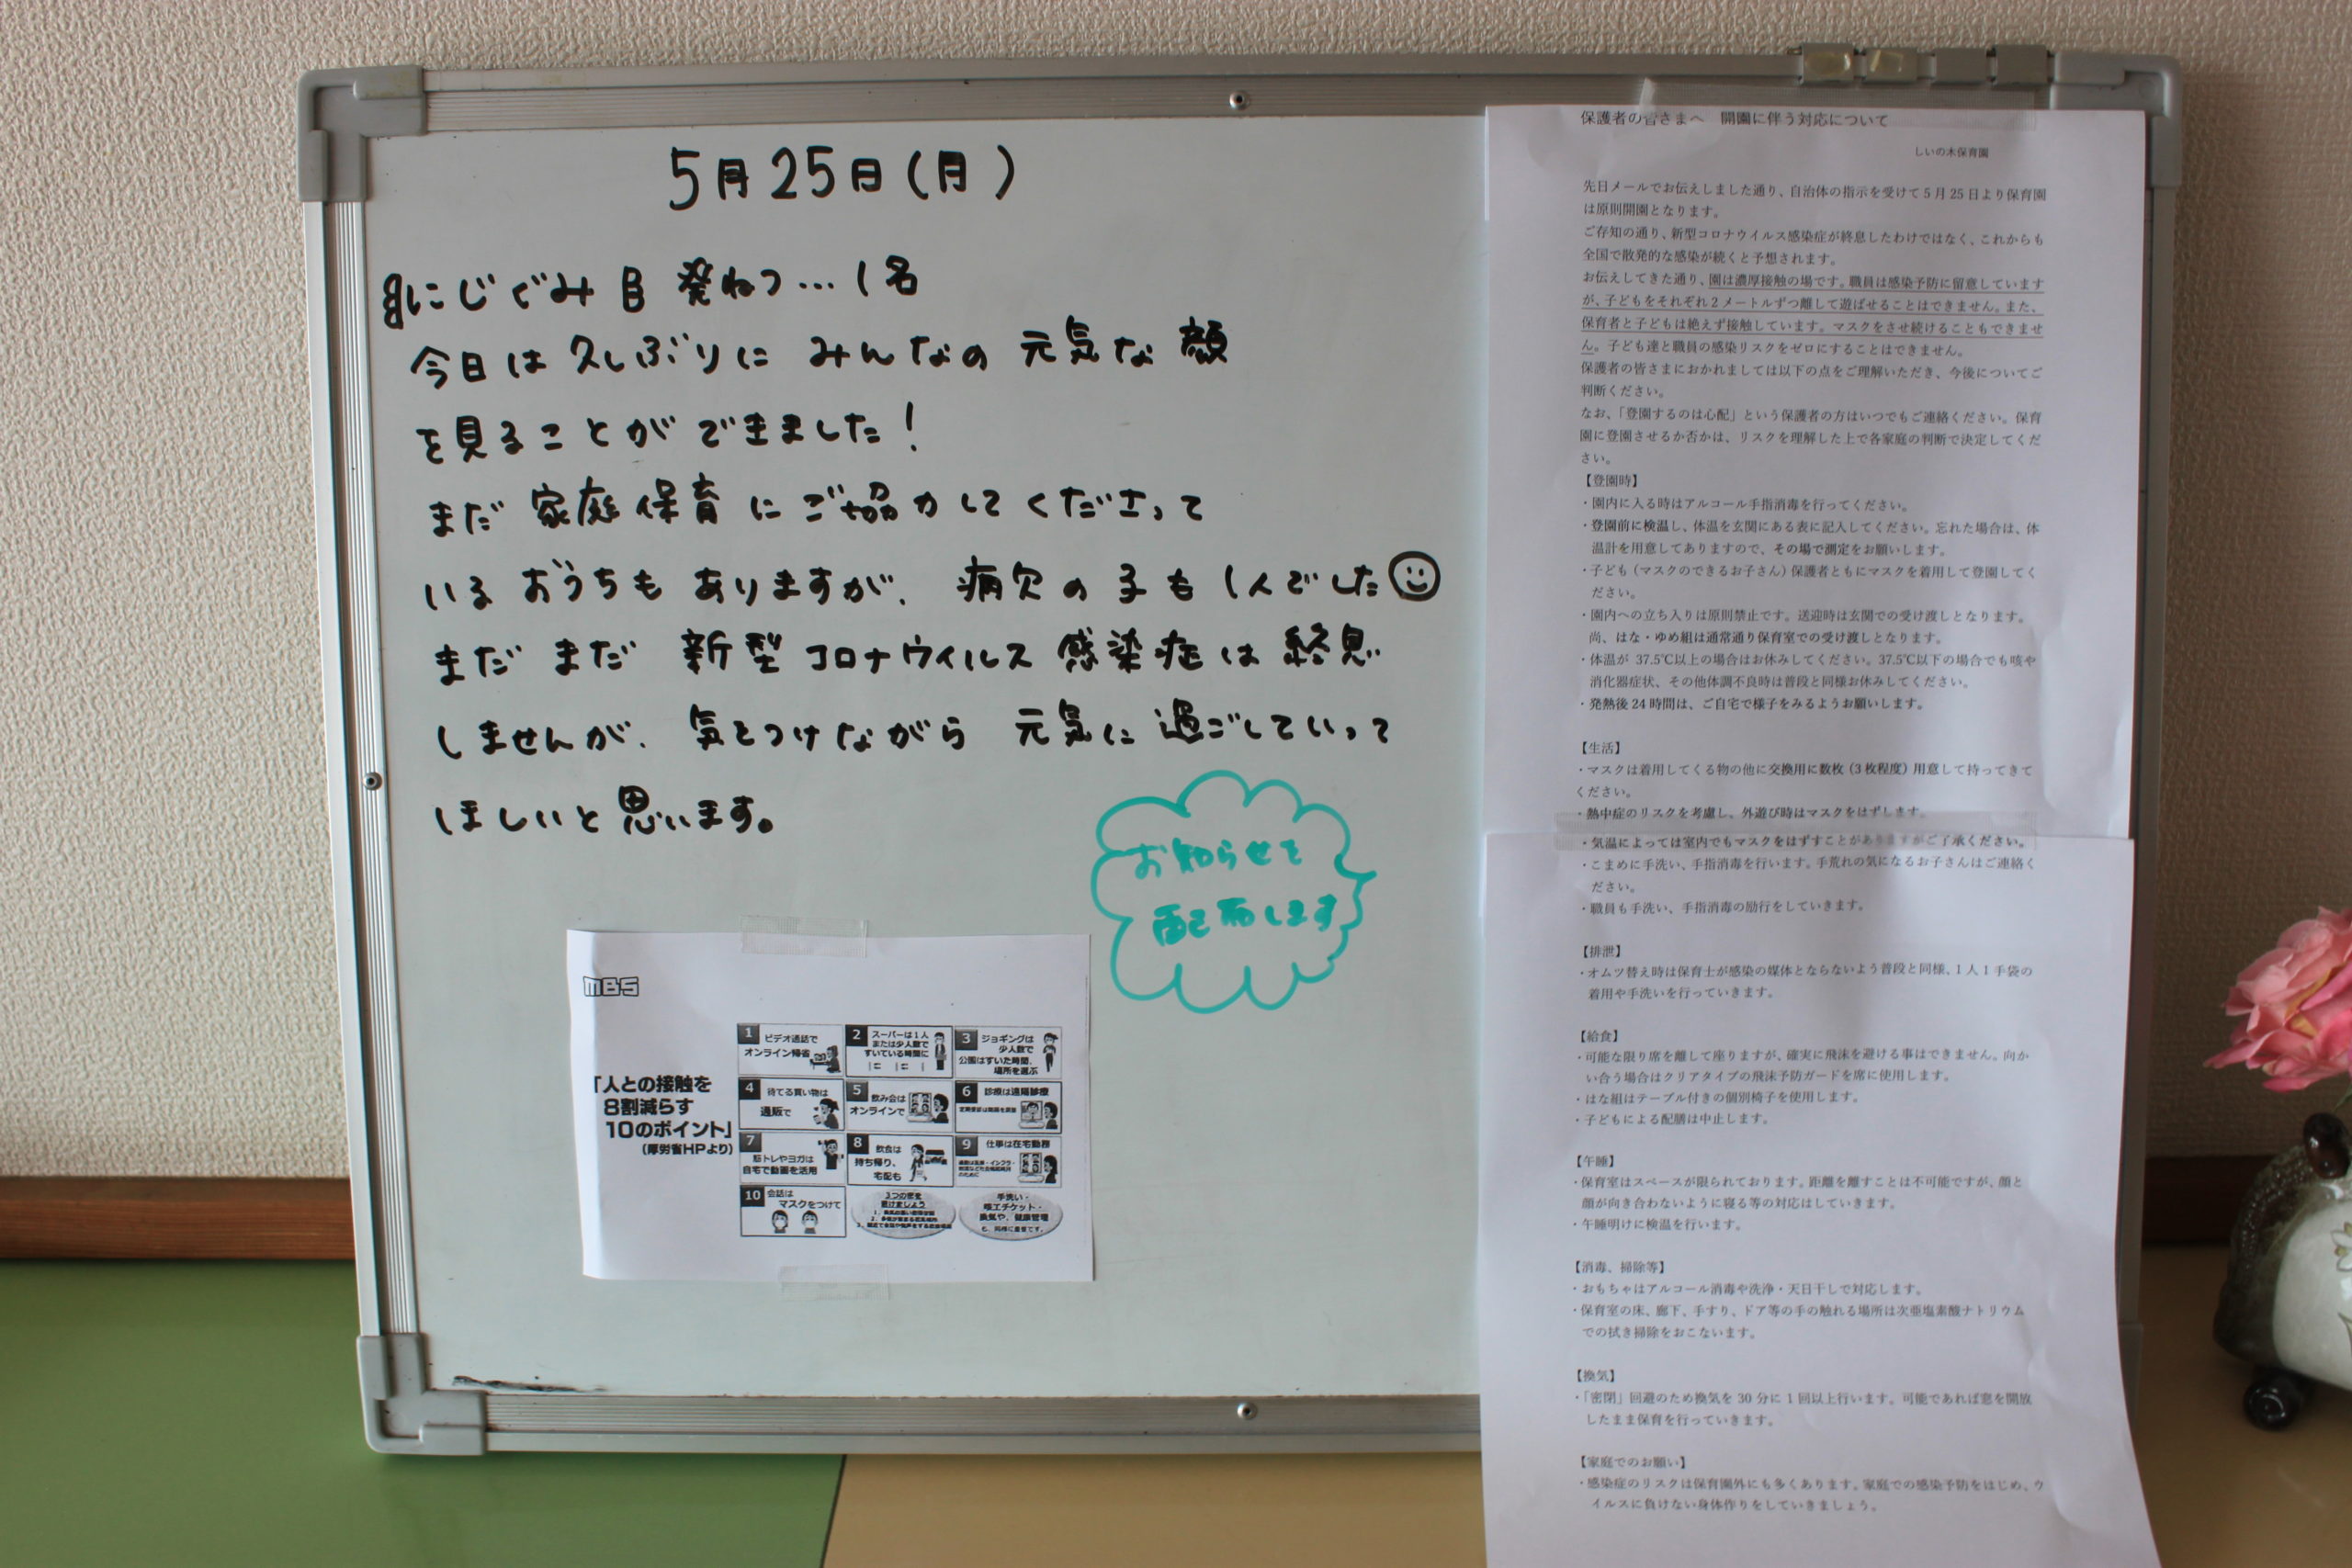 5月25日(月)
にじぐみ 発ねつ…1名
今日は 久しぶりに みんなの 元気な 顔
を見ることが できました!
まだ 家庭保育 に ご協力 して くださって
いる おうちも ありますが、病欠の 子も 1人でした
まだ まだ 新型 コロナウイルス 感染症は 終息
しませんが、気をつけながら 元気に 過ごしていって
ほしいと 思います。
お知らせを
配布します
MBS
「人との接触を
8割減らす
10のポイント」
(厚労省HPより)
1 ビデオ通話で
オンライン帰省
2 スーパーは1人
または少人数で
すいている時間に
3 ジョギングは
少人数で
公園はすいた時間、
場所を選ぶ
4 待てる買い物は
通販で
5 飲み会は
オンラインで
6 診療は遠隔診療
7 筋トレやヨガは
自宅で動画を活用
8 飲食は
持ち帰り、
宅配も
9 仕事は在宅勤務
10 会話は
マスクをつけて
3つの密を
避けましょう
手洗い・
咳エチケット・
換気や、健康管理
も、同様に重要です。
保護者の皆さまへ 開園に伴う対応について
しいの木保育園
先日メールでお伝えしました通り、自治体の指示を受けて5月25日より保育園
は原則開園となります。
ご存知の通り、新型コロナウイルス感染症が終息したわけではなく、これからも
全国で散発的な感染が続くと予想されます。
お伝えしてきた通り、園は濃厚接触の場です。職員は感染予防に留意しています
が、子どもをそれぞれ2メートルずつ離して遊ばせることはできません。また、
保育者と子どもは絶えず接触しています。マスクをさせ続けることもできませ
ん。子ども達と職員の感染リスクをゼロにすることはできません。
保護者の皆さまにおかれましては以下の点をご理解いただき、今後についてご
判断ください。
なお、「登園するのは心配」という保護者の方はいつでもご連絡ください。保育
園に登園させるか否かは、リスクを理解した上で各家庭の判断で決定してくだ
さい。
【登園時】
・園内に入る時はアルコール手指消毒を行ってください。
・登園前に検温し、体温を玄関にある表に記入してください。忘れた場合は、体
温計を用意してありますので、その場で測定をお願いします。
・子ども(マスクのできるお子さん)保護者ともにマスクを着用して登園してく
ださい。
・園内への立ち入りは原則禁止です。送迎時は玄関での受け渡しとなります。
尚、はな・ゆめ組は通常通り保育室での受け渡しとなります。
・体温が 37.5℃以上の場合はお休みしてください。37.5℃以下の場合でも咳や
消化器症状、その他体調不良時は普段と同様お休みしてください。
・発熱後24時間は、ご自宅で様子をみるようお願いします。
【生活】
・マスクは着用してくる物の他に交換用に数枚(3枚程度)用意して持ってきて
ください。
・熱中症のリスクを考慮し、外遊び時はマスクをはずします。
・気温によっては室内でもマスクをはずすことがありますがご了承ください。
・こまめに手洗い、手指消毒を行います。手荒れの気になるお子さんはご連絡く
ださい。
・職員も手洗い、手指消毒の励行をしていきます。
【排泄】
・オムツ替え時は保育士が感染の媒体とならないよう普段と同様、1人1手袋の
着用や手洗いを行っていきます。
【給食】
・可能な限り席を離して座りますが、確実に飛沫を避ける事はできません。向か
い合う場合はクリアタイプの飛沫予防ガードを席に使用します。
・はな組はテーブル付きの個別椅子を使用します。
・子どもによる配膳は中止します。
【午睡】
・保育室はスペースが限られております。距離を離すことは不可能ですが、顔と
顔が向き合わないように寝る等の対応はしていきます。
・午睡明けに検温を行います。
【消毒、掃除等】
・おもちゃはアルコール消毒や洗浄・天日干しで対応します。
・保育室の床、廊下、手すり、ドア等の手の触れる場所は次亜塩素酸ナトリウム
での拭き掃除をおこないます。
【換気】
・「密閉」回避のため換気を 30 分に 1 回以上行います。可能であれば窓を開放
したまま保育を行っていきます。
【家庭でのお願い】
・感染症のリスクは保育園外にも多くあります。家庭での感染予防をはじめ、ウ
イルスに負けない身体作りをしていきましょう。